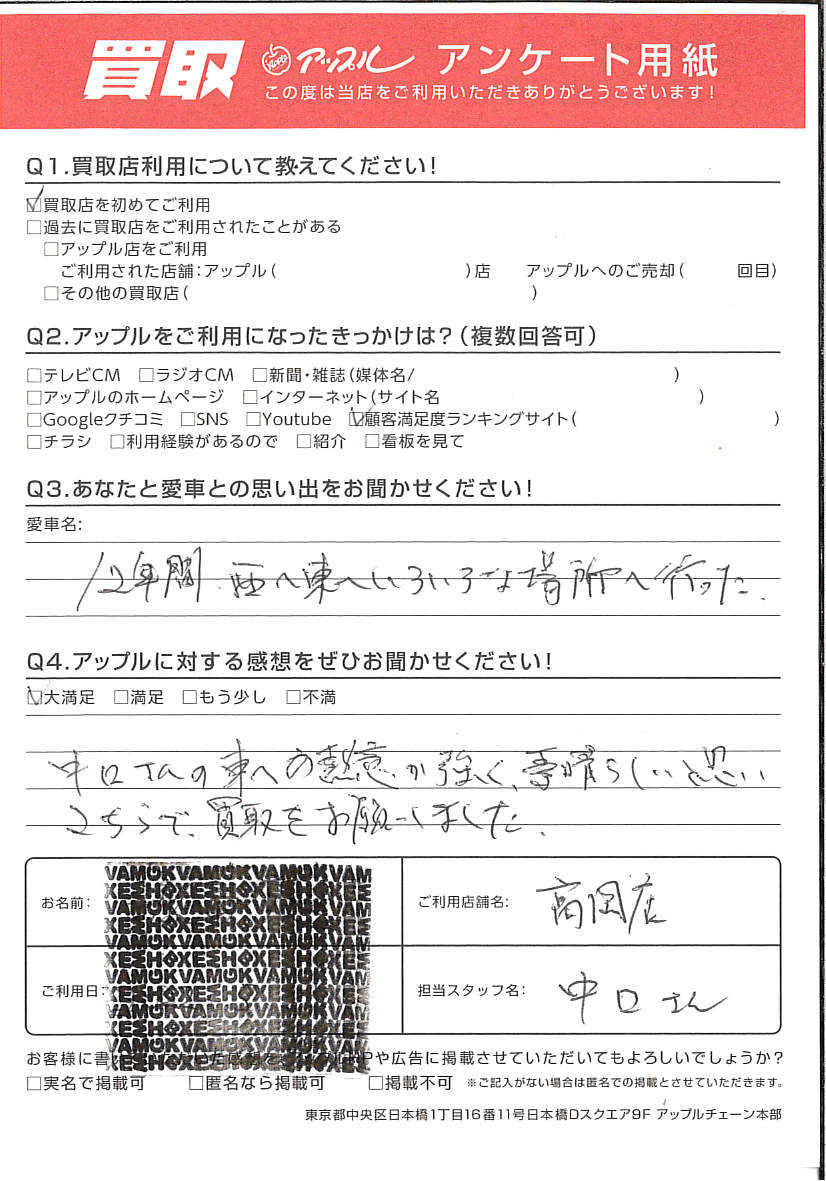 買取 アップル アンケート用紙
この度は当店をご利用いただきありがとうございます!
Q1.買取店利用について教えてください!
☑買取店を初めてご利用
□過去に買取店をご利用されたことがある
□アップル店をご利用
ご利用された店舗:アップル( )店 アップルへのご売却( 回目)
□その他の買取店( )
Q2.アップルをご利用になったきっかけは?(複数回答可)
□テレビCM □ラジオCM □新聞・雑誌(媒体名/ )
□アップルのホームページ □インターネット(サイト名 )
□Googleクチコミ □SNS □Youtube ☑顧客満足度ランキングサイト( )
□チラシ □利用経験があるので □紹介 □看板を見て
Q3.あなたと愛車との思い出をお聞かせください!
愛車名:
12年間、西へ東へいろいろな場所へ行った.
Q4.アップルに対する感想をぜひお聞かせください!
☑大満足 □満足 □もう少し □不満
中口さんの車への熱意が強く、素晴らしいと思い
こちらで、買取をお願いしました.
お名前: ご利用店舗名: 高岡店
ご利用日: 担当スタッフ名: 中口さん
お客様に書 や広告に掲載させていただいてもよろしいでしょうか?
□実名で掲載可 □匿名なら掲載可 □掲載不可 ※ご記入がない場合は匿名での掲載とさせていただきます。
東京都中央区日本橋1丁目16番11号日本橋Dスクエア9F アップルチェーン本部